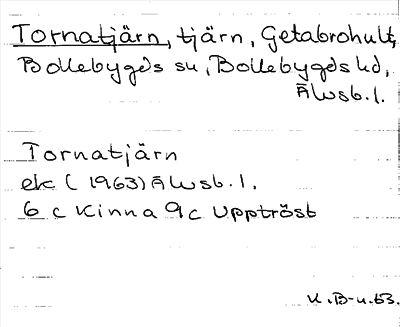 Tornatjärn, tjärn, Getabrohult,
Bollebygds sn, Bollebygds hd,
Älvsb. l.
Tornatjärn
ek (1963) Älvsb. l.
6 c Kinna 9 c Upptröst
K.B-n.63.